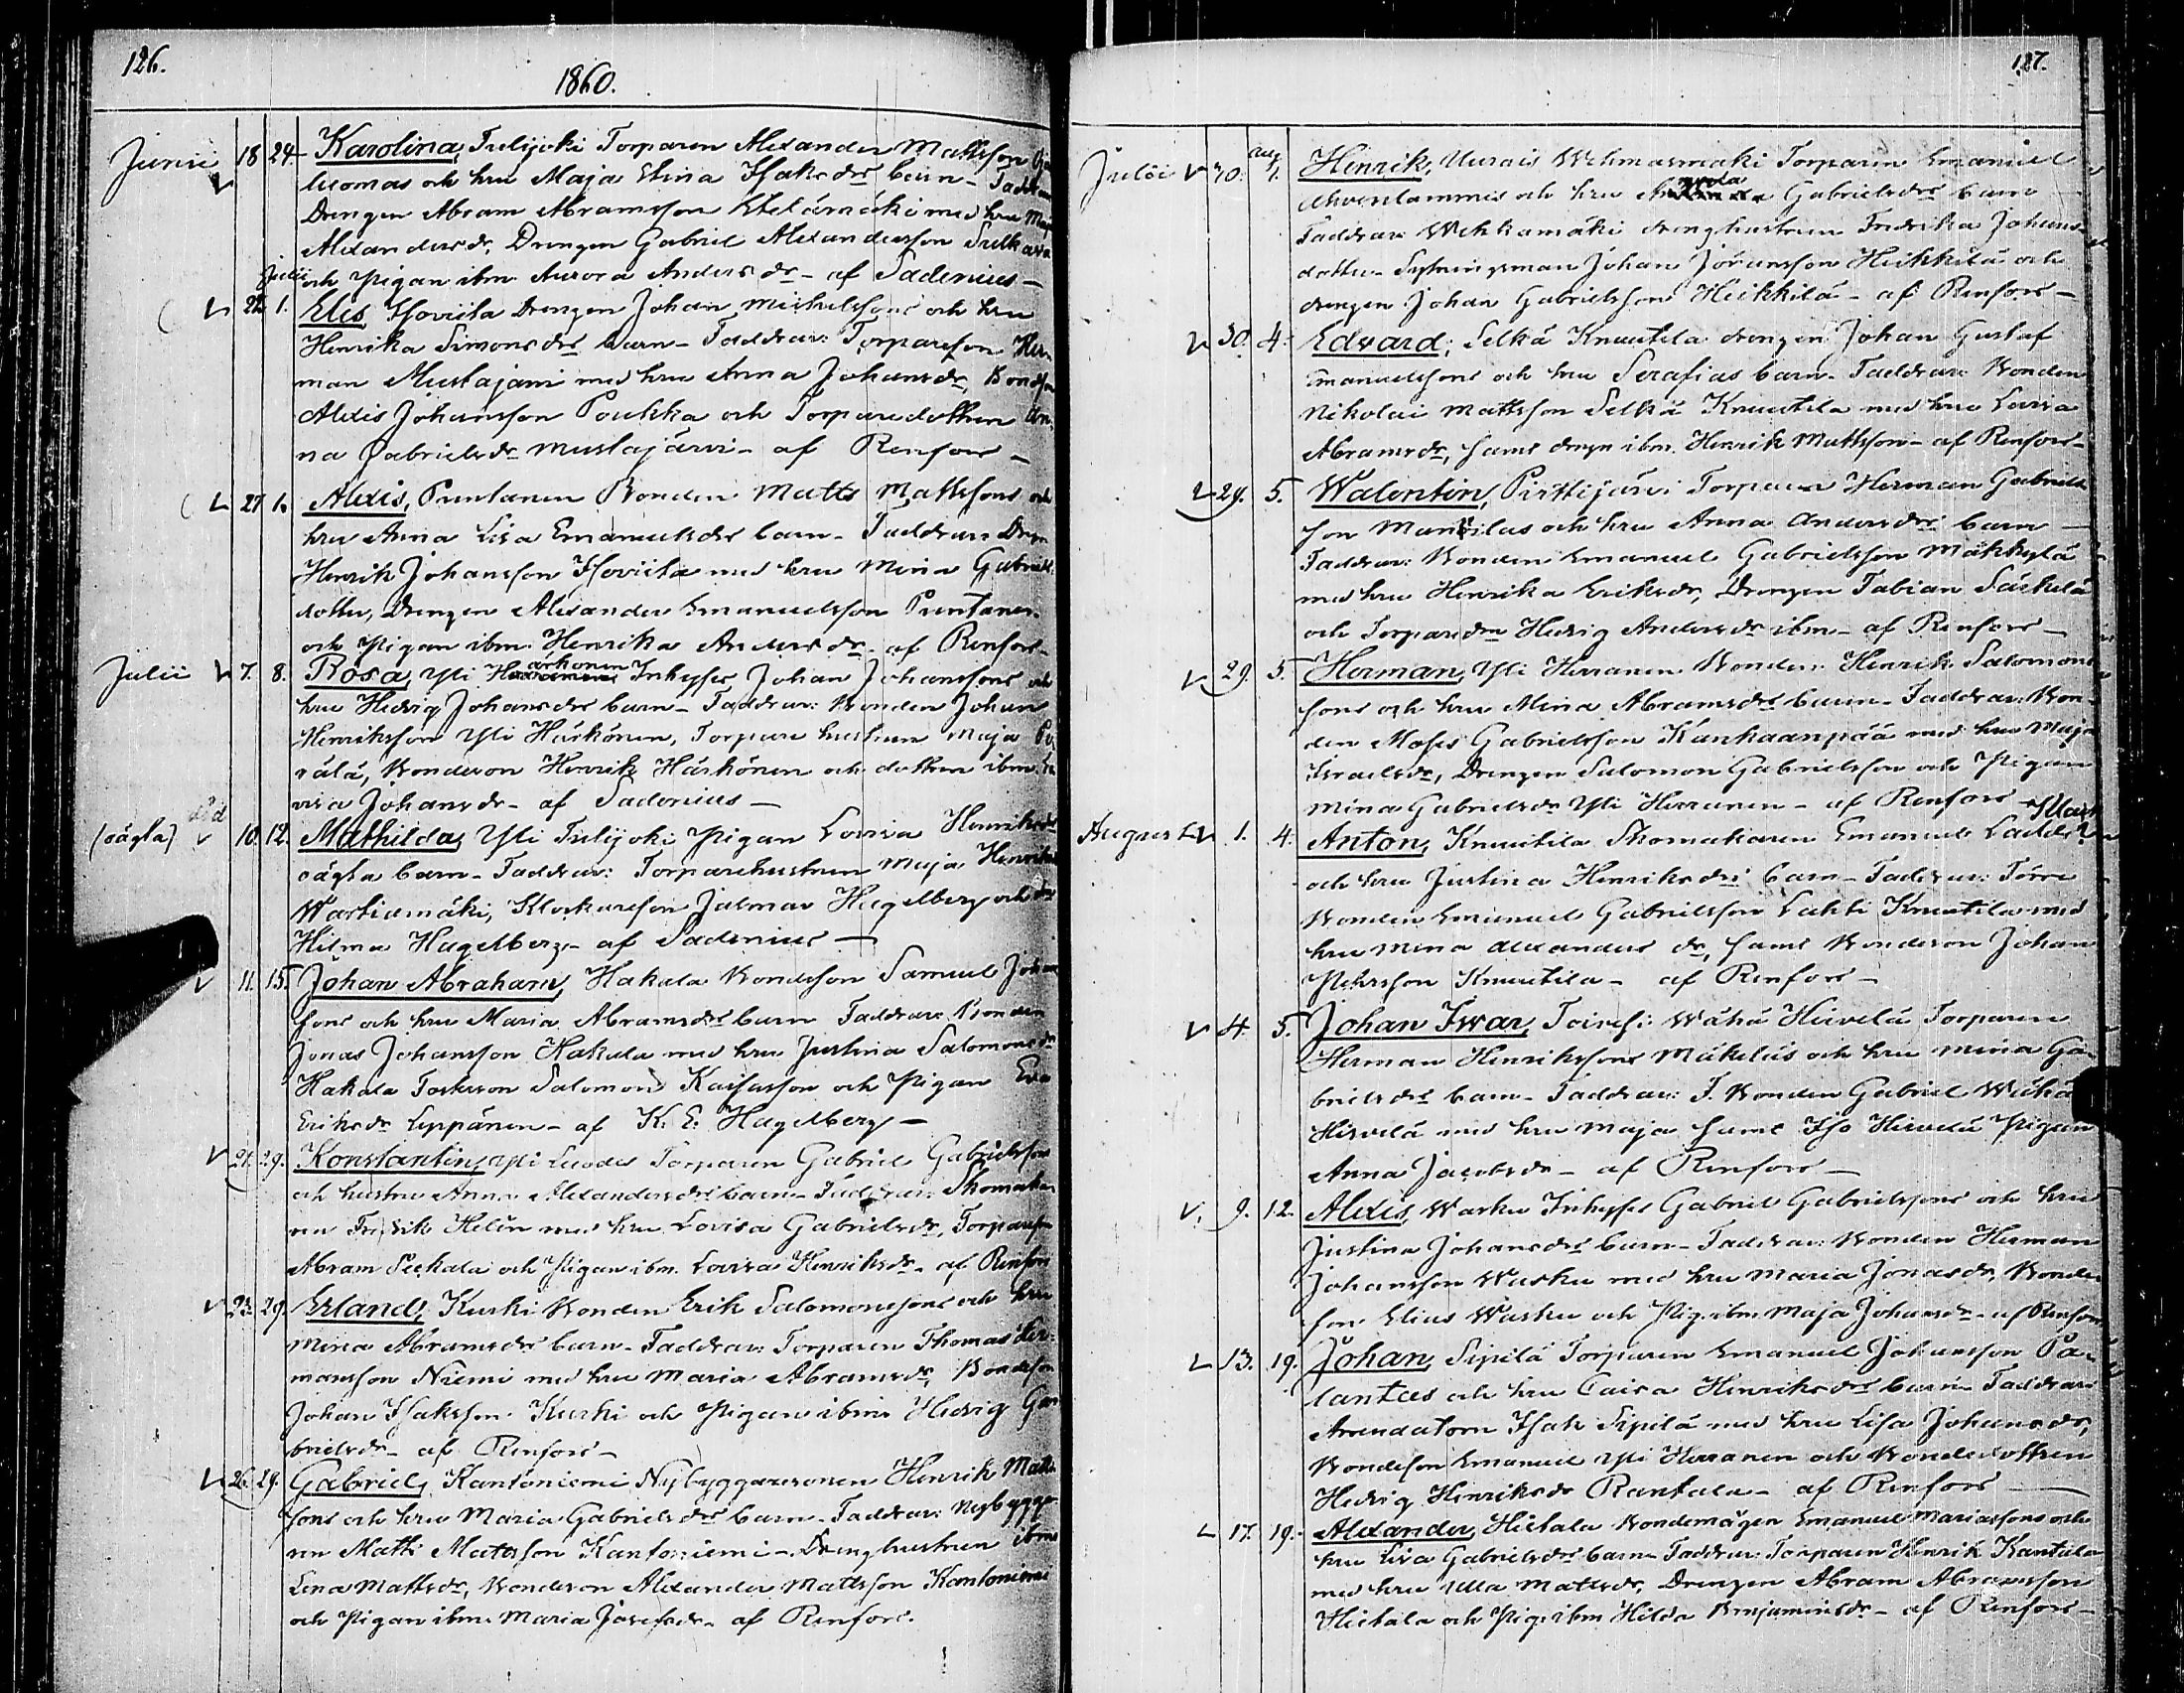 126.
1860.
Junii 18 24 Karolina, Tulijoki Torparen Alexander Mattsson
luomas och hru Maja Stina Isaksdrs barn - Taddrar
Drengen Abram Abramsson Ketämäki med hru Maja
Alexandersdr, Drengen Gabriel Alexandersson
Julii och Pigan ibm Aurora Andersdr - af Sadenius -
22. 1. Elis, Isoviita Drengen Johan Michelssons och hru
Henrika Simonsdrs barn - Taddrar: Torpareson Her-
man Mustajärvi med hru Anna Johansdr, Bondeson
Alexis Johansson Poukka och Torparedottren An-
na Gabrielsdr Mustajärvi - af Renfors -
27 1. Alexis, Puntanen Bonden Matts Mattssons och
hru Anna Lisa Emanuelsdrs barn - Taddrar: Dreng
Henrik Johansson Isoviita med hru Mina Gabriels
dotter, Drengen Alexander Emanuelsson Puntanen
och Pigan ibm Henrika Andersdr - af Renfors -
Julii 7. 8. Rosa, Yli Inhyses Johan Johanssons och
hru Hedvig Johansdrs barn - Taddrar: Bonden Johan
Henriksson Yli Härkönen, Torpare hustrun Maja
rälä, Bondeson Henrik Härkönen och dottren ibm
visa Johansdr - af Sadenius -
(oägta) död 10. 12. Mathilda, Yli Tulijoki Pigan Lovisa Henriksdrs
oägta barn - Taddrar: Torparehustrun Maja Henriks
Wartiamäki, Klockareson Jalmar Hagelberg och dr
Hilma Hagelberg - af Sadenius -
11. 15. Johan Abraham, Hakala Bondeson Samuel Johans
sons och hru Maria Abramsdrs barn Taddrar: Bonden
Jonas Johansson Hakala med hru Justina Salomonsdr
Hakala Salomon och Pigan Eva
Eriksdr Leppänen - af K. E. Hagelberg -
21. 29. Konstantin, Yli Torparen Gabriel Gabrielssons
och hustru Anna Alexandersdrs barn - Taddrar: Skomaka-
ren Fredrik Helén med hru Lovisa Gabrielsdr, Torpareson
Abram och Pigan ibm. Lovisa Henriksdr - af Renfors
23. 29. Erland, Kurki Bonden Erik Salomonssons och hru
Mina Abramsdrs barn - Taddrar: Torparen Thomas Her-
mansson Niemi med hru Maria Abramsdr, Bondeson
Johan Isaksson Kurki och Pigan ibm Hedvig Ga-
brielsdr - af Renfors -
26. 29. Gabriel, Kantoniemi Nybyggaresonen Henrik Matts-
sons och hru Maria Gabrielsdrs barn - Taddrar: Nybygga-
ren Matts Mattsson Kantoniemi - Drenghustrun ibm
Lena Mattsdr, Bondeson Alexander Mattsson Kantoniemi
och Pigan ibm. Maria Josefsdr - af Renfors.
127.
Julii 30. Aug. 1. Henrik, Uurais Wehmasmäki Torparen Emanuel
Ahvenlammis och hru Gabrielsdrs barn -
Taddrar: Wehkamäki drenghustrun Fredrika Johans-
dotter - Sytningsman Johan Jöransson Heikkilä och
drengen Johan Gabrielsson Heikkilä - af Renfors -
30. 4. Edvard, Selkä Knuutila drengen Johan Gustaf
Emanuelssons och hru Serafias barn - Taddrar: Bonden
Nikolai Mattsson Selkä Knuutila med hru Lovisa
Abramsdr, samt dreng ibm. Henrik Mattsson - af Renfors -
29. 5. Walentin, Pirttijärvi Torparen Herman Gabriels
son och hru Anna Andersdrs barn -
Taddrar: Bonden Emanuel Gabrielsson Mäkkylä
med hru Henrika Eriksdr, Drengen Fabian Särkelä
och Torparedrn Hedvig Andersdr ibm - af Renfors -
29. 5. Herman, Yli Herranen Bonden Henrik Salomons
sons och hru Mina Abramsdrs barn - Taddrar: Bon-
den Moses Gabrielsson Kankaanpää med hru Maja
Israelsdr, Drengen Salomon Gabrielsson och Pigan
Mina Gabrielsdr Yli Herranen - af Renfors
August 1. 4. Anton, Knuutila Skomakaren Emanuel
och hru Justina Henriksdrs barn - Taddrar: Förre
Bonden Emanuel Gabrielsson Lahti Knuutila med
hru Mina Alexanders dr, samt Bondeson Johan
Pehrsson Knuutila - af Renfors -
4. 5. Johan Iwar, Toivesi Wähä Hirvelä Torparen
Herman Henrikssons Mäkeläs och hru Mina Ga-
brielsdrs barn - Taddrar: F. Bonden Gabriel Wähä
Hirvelä med hru Maja samt Iso Hirvelä Pigan
Anna Jacobsdr - af Renfors -
9. 12. Alexis, Wasku Inhyses Gabriel Gabrielssons och hru
Justina Johansdrs barn - Taddrar: Bonden Herman
Johansson Wasku med hru Maria Jonasdr, Bonde-
son Elias Wasku och Pig. ibm Maja Johansdr - af Renfors
13. 19. Johan, Sipilä Torparen Emanuel Johansson Pa-
lantees och hru Caisa Henriksdrs barn - Taddrar:
Arrendatorn Isak Sipilä med hru Lisa Johansdr,
Bondeson Emanuel Yli Herranen och Bondedottren
Hedvig Henriksdr Rantala - af Renfors -
17. 19. Alexander, Hietala Bondemågen Emanuel Mariassons och
hru Lisa Gabrielsdrs barn Taddrar: Torparen Henrik Kantala
med hru Ulla Mattsdr, Drengen Abram Abramsson
Hietala och Pig. ibm Hilda Benjaminsdr - af Renfors -